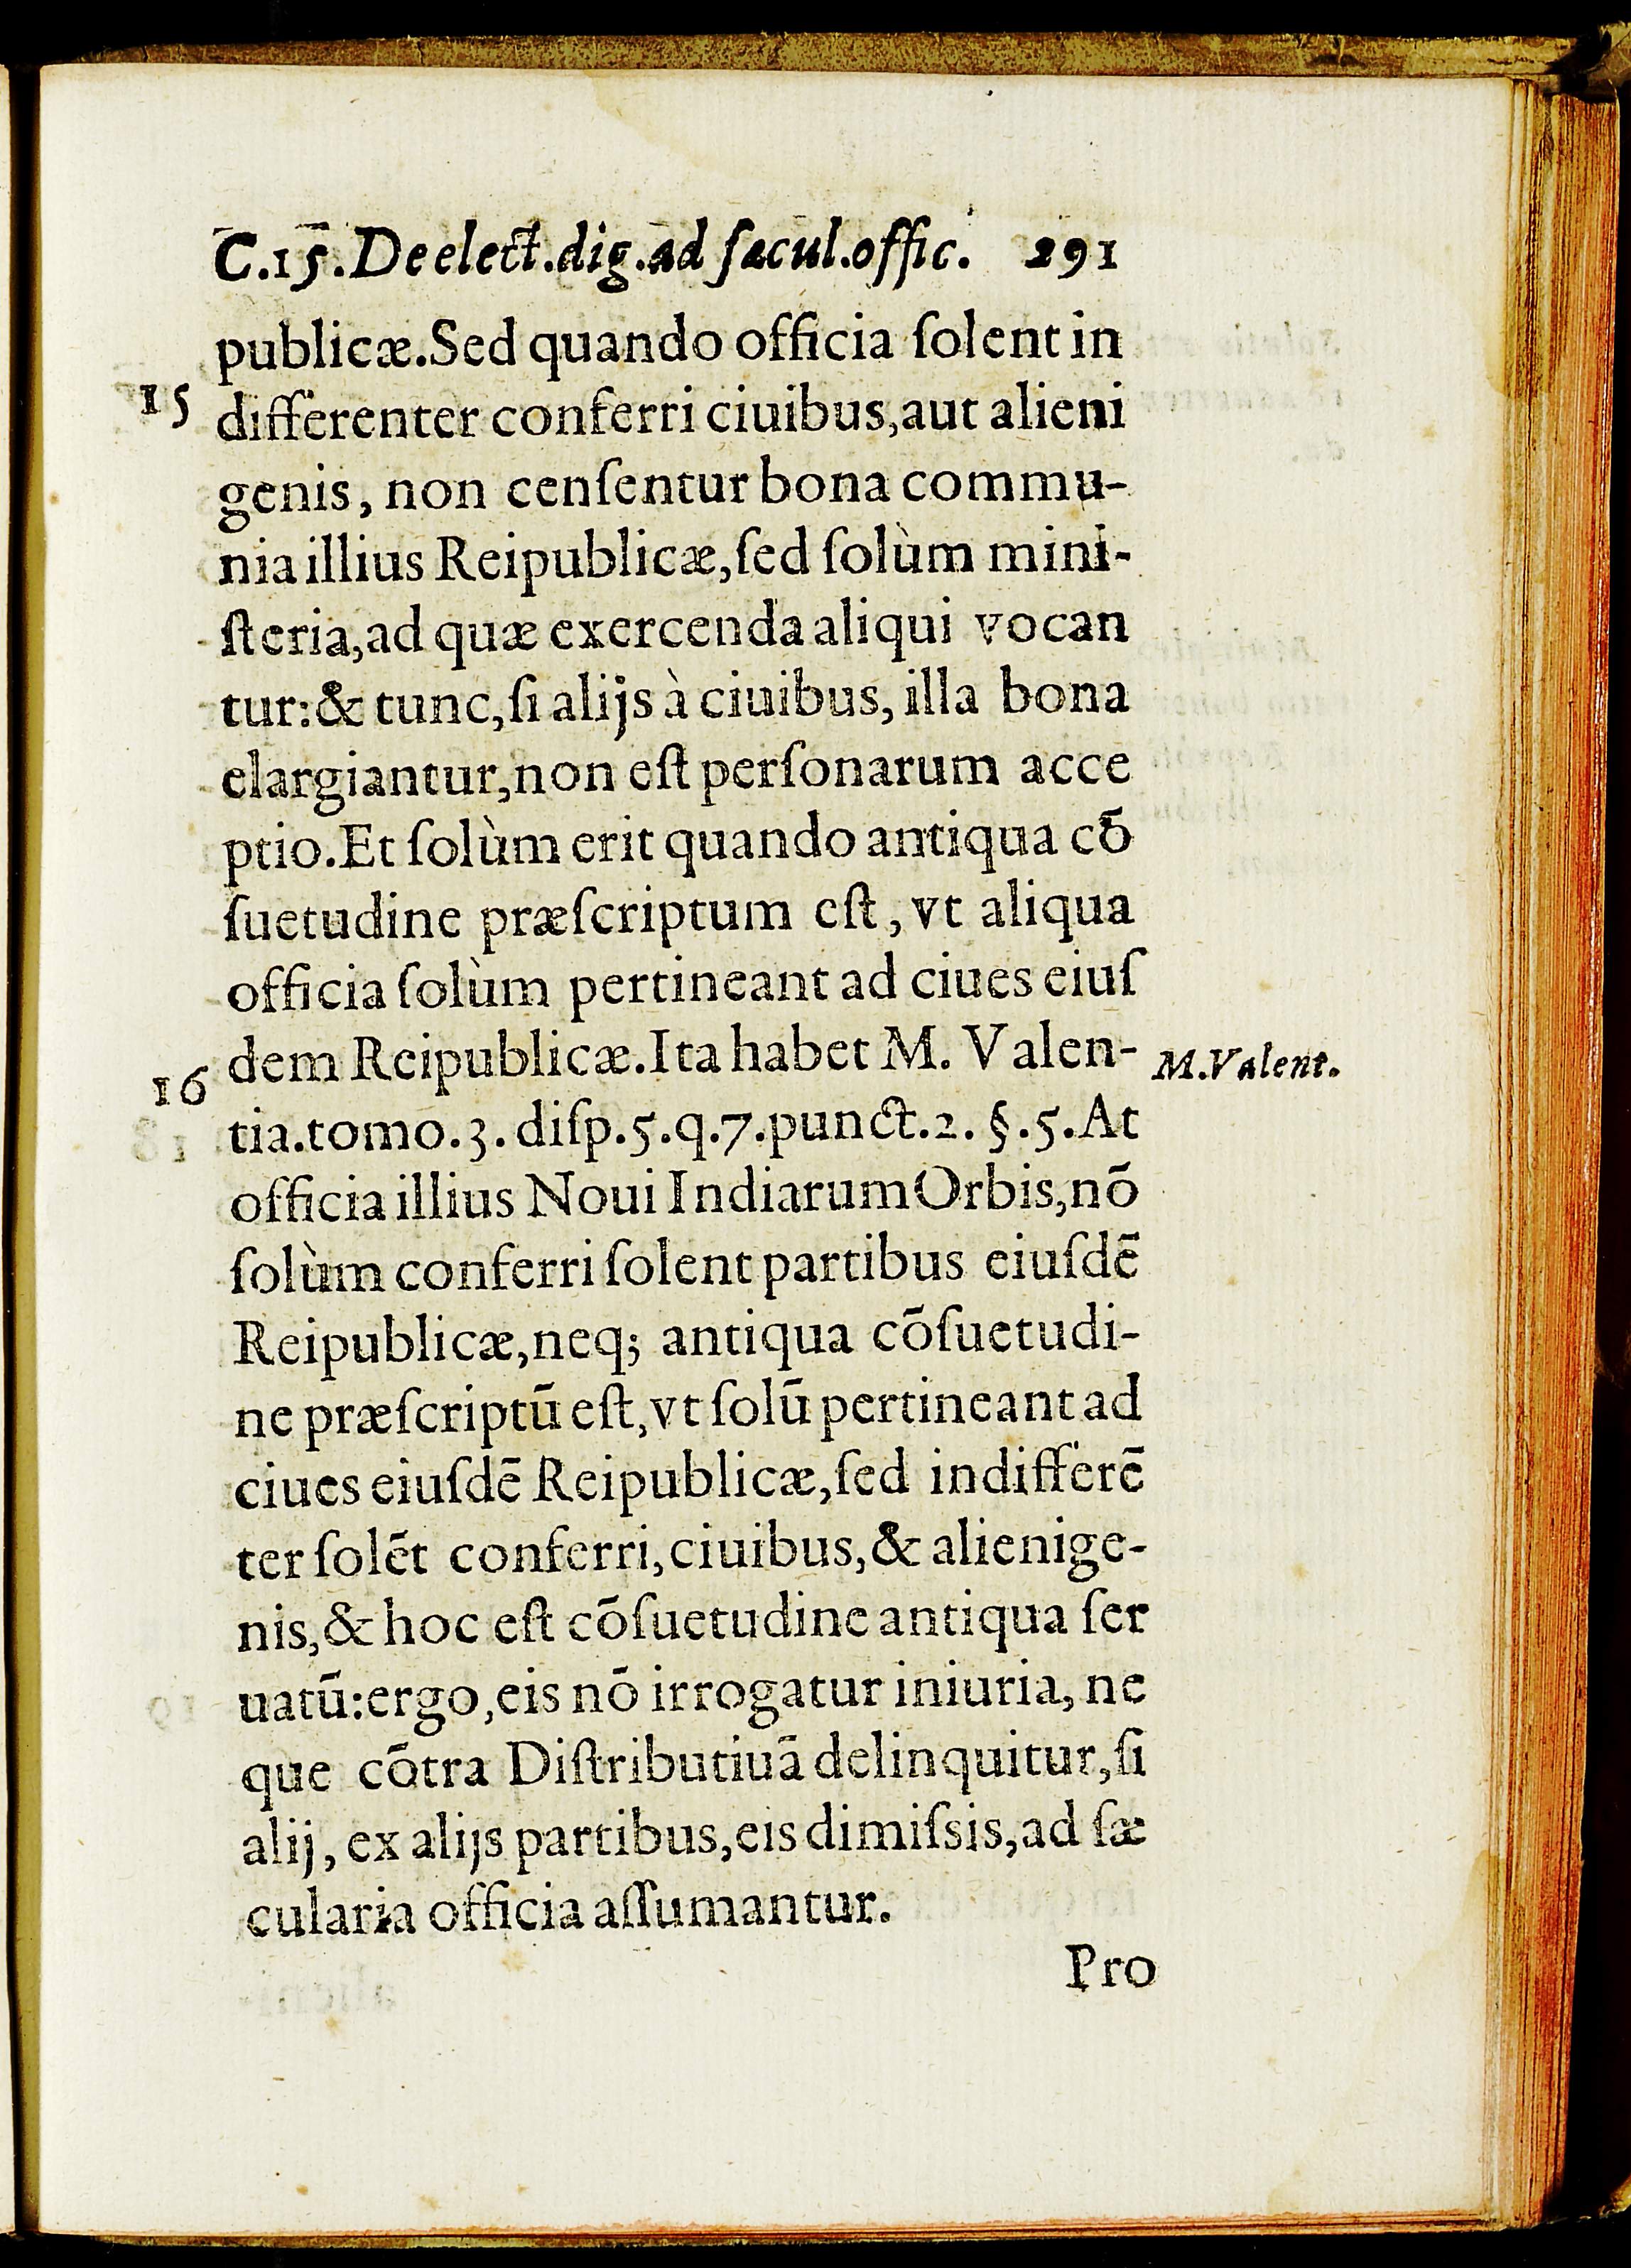 C.15.De elect.dig.ad sæcul.offic. 291
publicæ.Sed quando officia ſolent in
15 differenter conferri ciuibus,aut alieni
genis, non cenſentur bona commu-
nia illius Reipublicæ,ſed ſolùm mini-
ſteria,ad quæ exercenda aliqui vocan
tur:& tunc,ſi alijs à ciuibus, illa bona
elargiantur,non eſt perſonarum acce
ptio.Et ſolùm erit quando antiqua cō
ſuetudine præſcriptum eſt, vt aliqua
officia ſolùm pertineant ad ciues eiuſ
dem Reipublicæ.Ita habet M. Valen- M.Valent.
16 tia.tomo.3. diſp.5.q.7.punct.2. §.5.At
officia illius Noui Indiarum Orbis,nō
ſolùm conferri ſolent partibus eiuſdē
Reipublicæ,neq; antiqua cōſuetudi-
ne præſcriptū eſt,vt ſolū pertineant ad
ciues eiuſdē Reipublicæ,ſed indifferē
ter ſolēt conferri,ciuibus,& alienige-
nis,& hoc eſt cōſuetudine antiqua ſer
uatū:ergo,eis nō irrogatur iniuria, ne
que cōtra Diſtributiuā delinquitur,ſi
alij, ex alijs partibus,eis dimiſsis,ad ſæ
cularia officia aſſumantur.
Pro